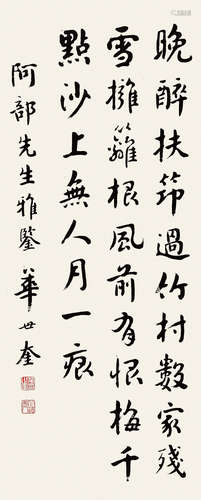 晚醉扶筇過竹村數家殘
雪擁籬根風前有恨梅千
點沙上無人月一痕
阿部先生雅鑒華世奎